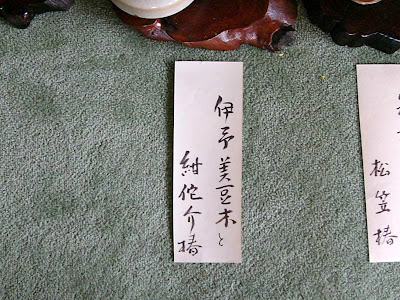 伊予美豆木と
紺侘介椿
松笠椿